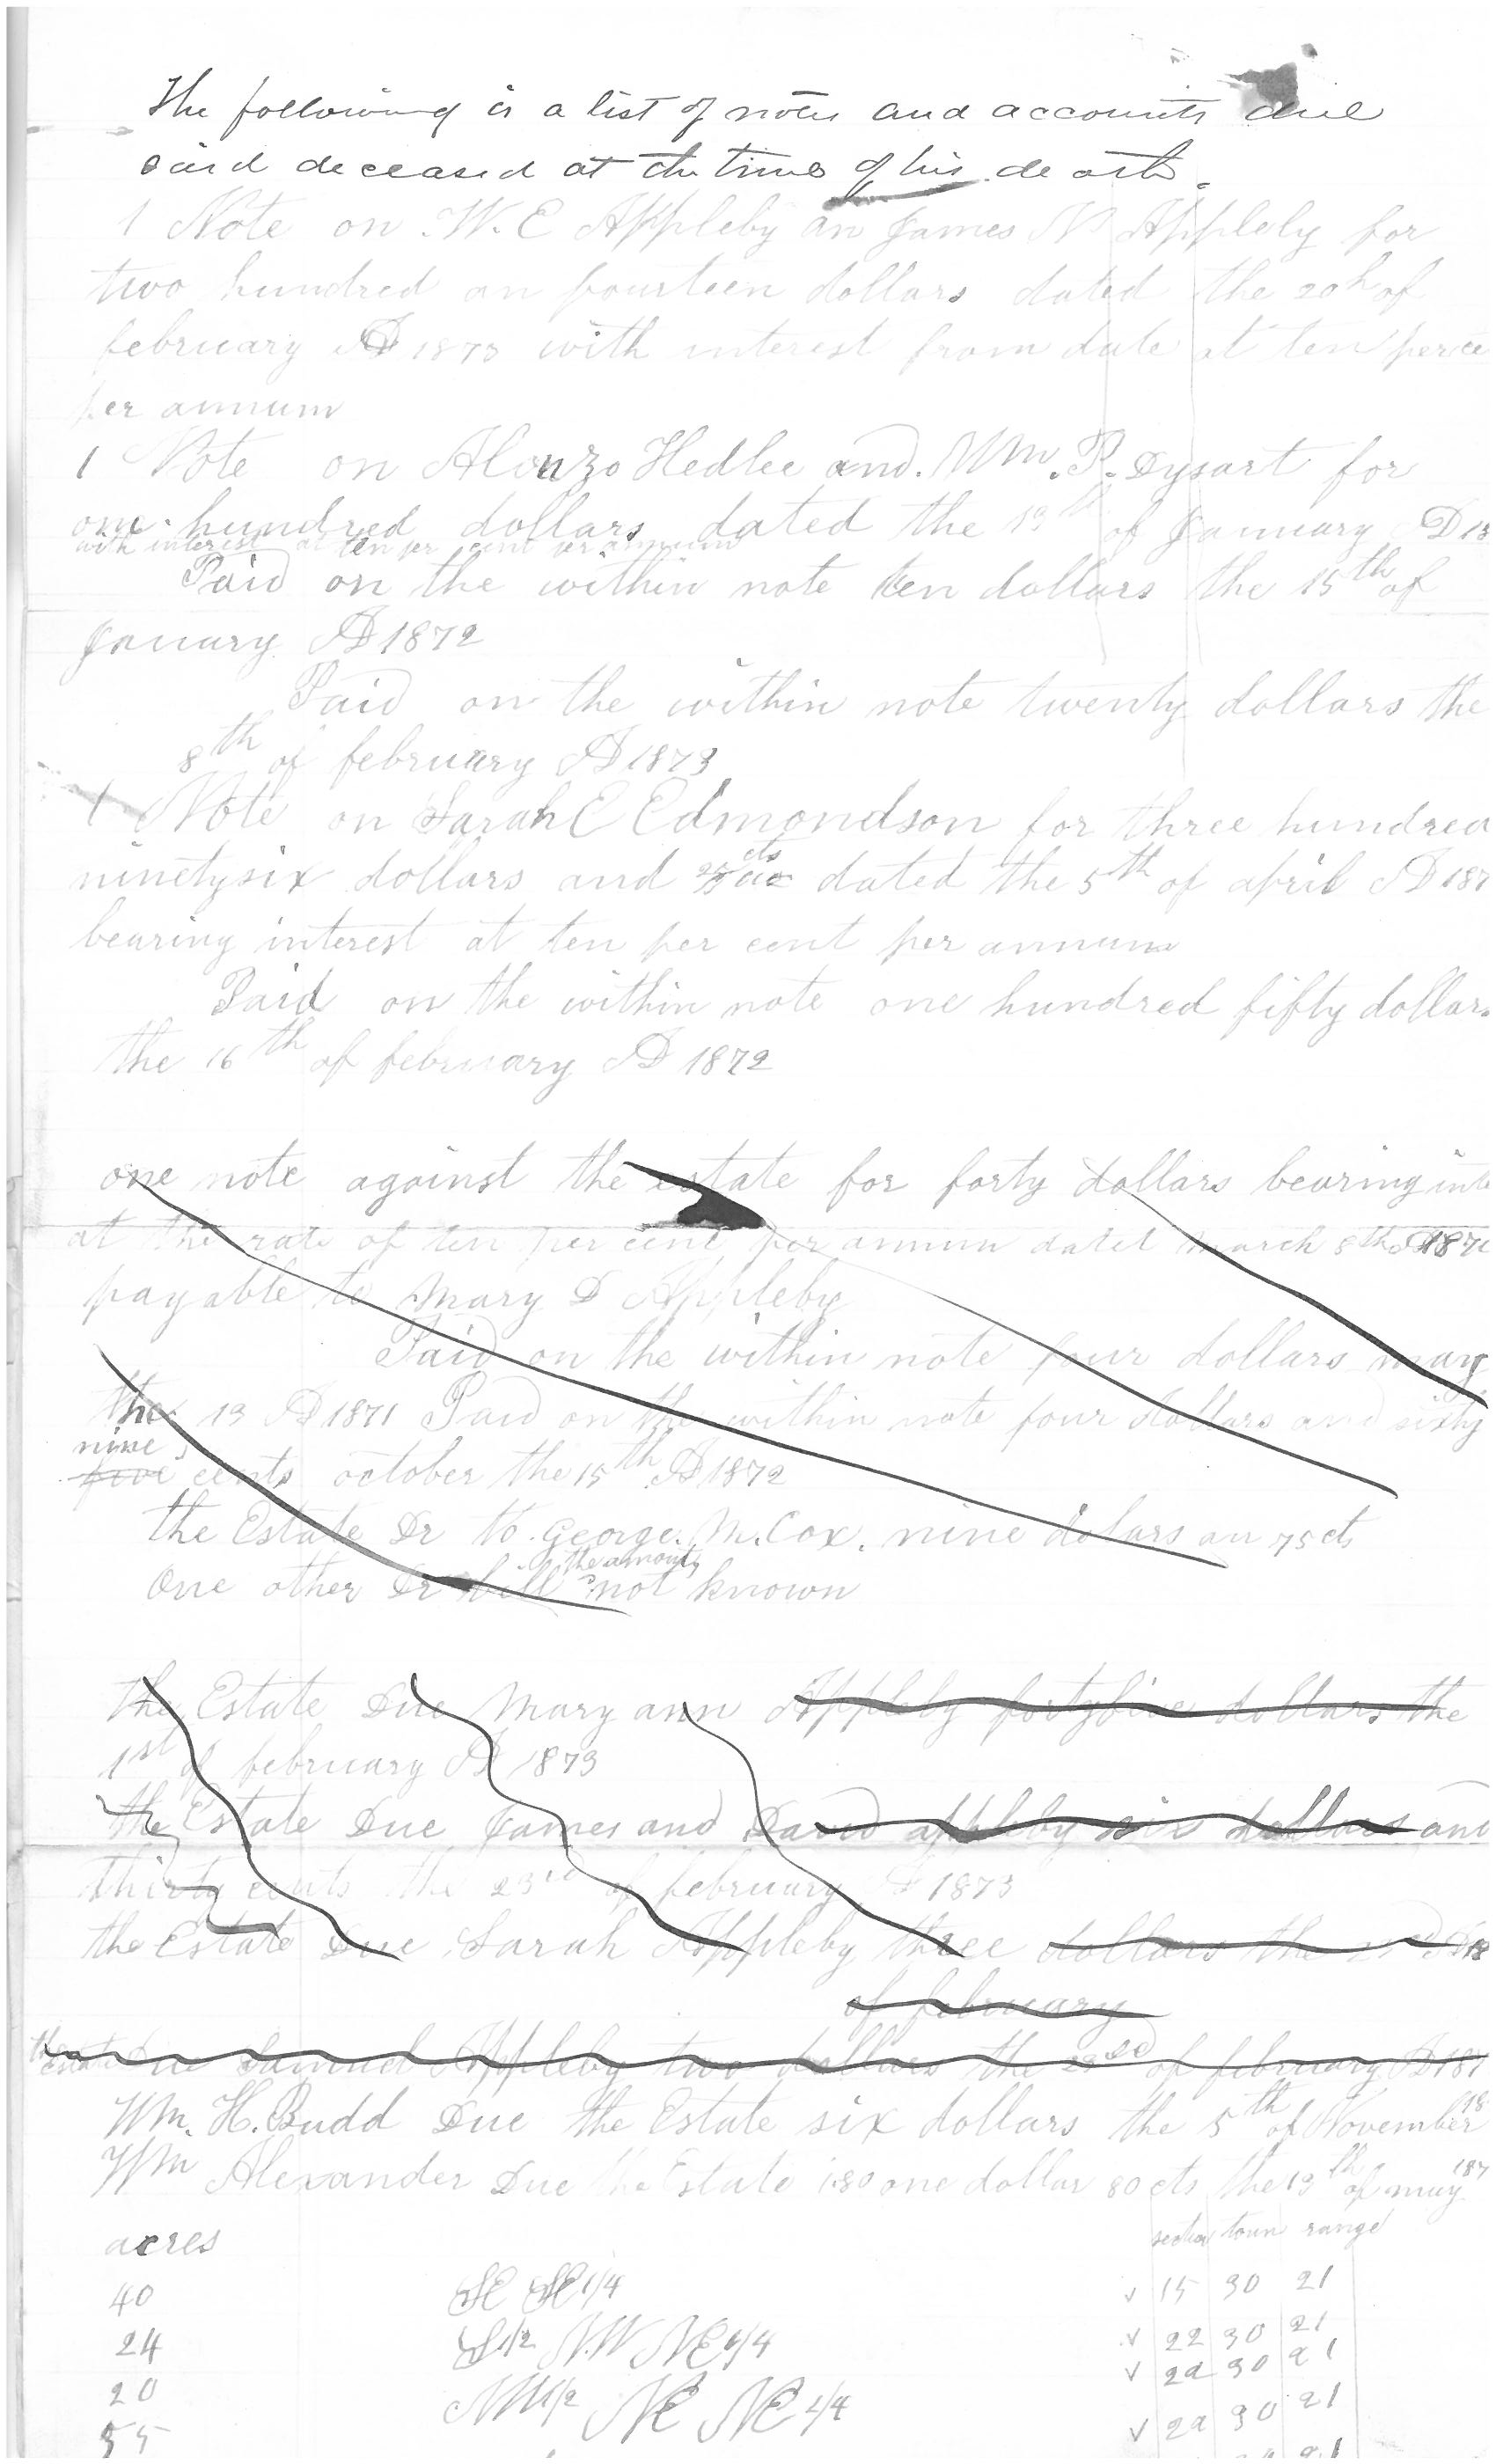 The following is a list of notes and accounts due
said deceased at the time of his death.
1 Note on W. E Appleby an James N Appleby for
two hundred an fourteen dollars dated the 20h of
february AD 1873 with interest from date at ten per ce
per annum
1 Note on Alonzo Hedlee and. Wm. P. Dysart for
one hundred dollars dated the 19th of January AD 18
with interest at ten per cent per annum
Paid on the within note ten dollars the 15th of
January AD 1872
Paid on the within note twenty dollars the
8th of february AD 1873
1 Note on Sarah E Edmondson for three hundred
ninetysix dollars and cts dated the 5th of april AD 187
bearing interest at ten per cent per annum
Paid on the within note one hundred fifty dollars
the 16th of february AD 1872
one note against the estate for forty dollars bearing inte
at the rate of ten per cent per annum dated march 8th AD 187
payable to Mary D Appleby
Paid on the within note four dollars may
the 13 AD 1871 Paid on the within note four dollars and sixty
nine
five cents october the 15th AD 1872
the Estate Dr to George. M. Cox. nine dolars an 75 cts
the amount
One other Dr bill not known
the Estate Due Mary ann Appleby fortyfive dollars the
1st of february AD 1873
the Estate Due James and David appleby six dollars and
thirty cents the 23rd of february AD 1873
the Estate Due Sarah Appleby three dollars the AD 18
of february
the estate Due Samuel Appleby two dollars the 22nd of february AD 187
Wm. H. Budd Due the Estate six dollars the 5th of November 18
Wm Alexander Due the Estate 1.80 one dollar 80 cts the 19th of may 187
acres section town range
40 SE SE 1/4 v 15 30 21
24 S 1/2 N.W NE 1/4 v 22 30 21
20 N 1/2 NE NE 1/4 v 22 30 21
55 v 22 30 21
21